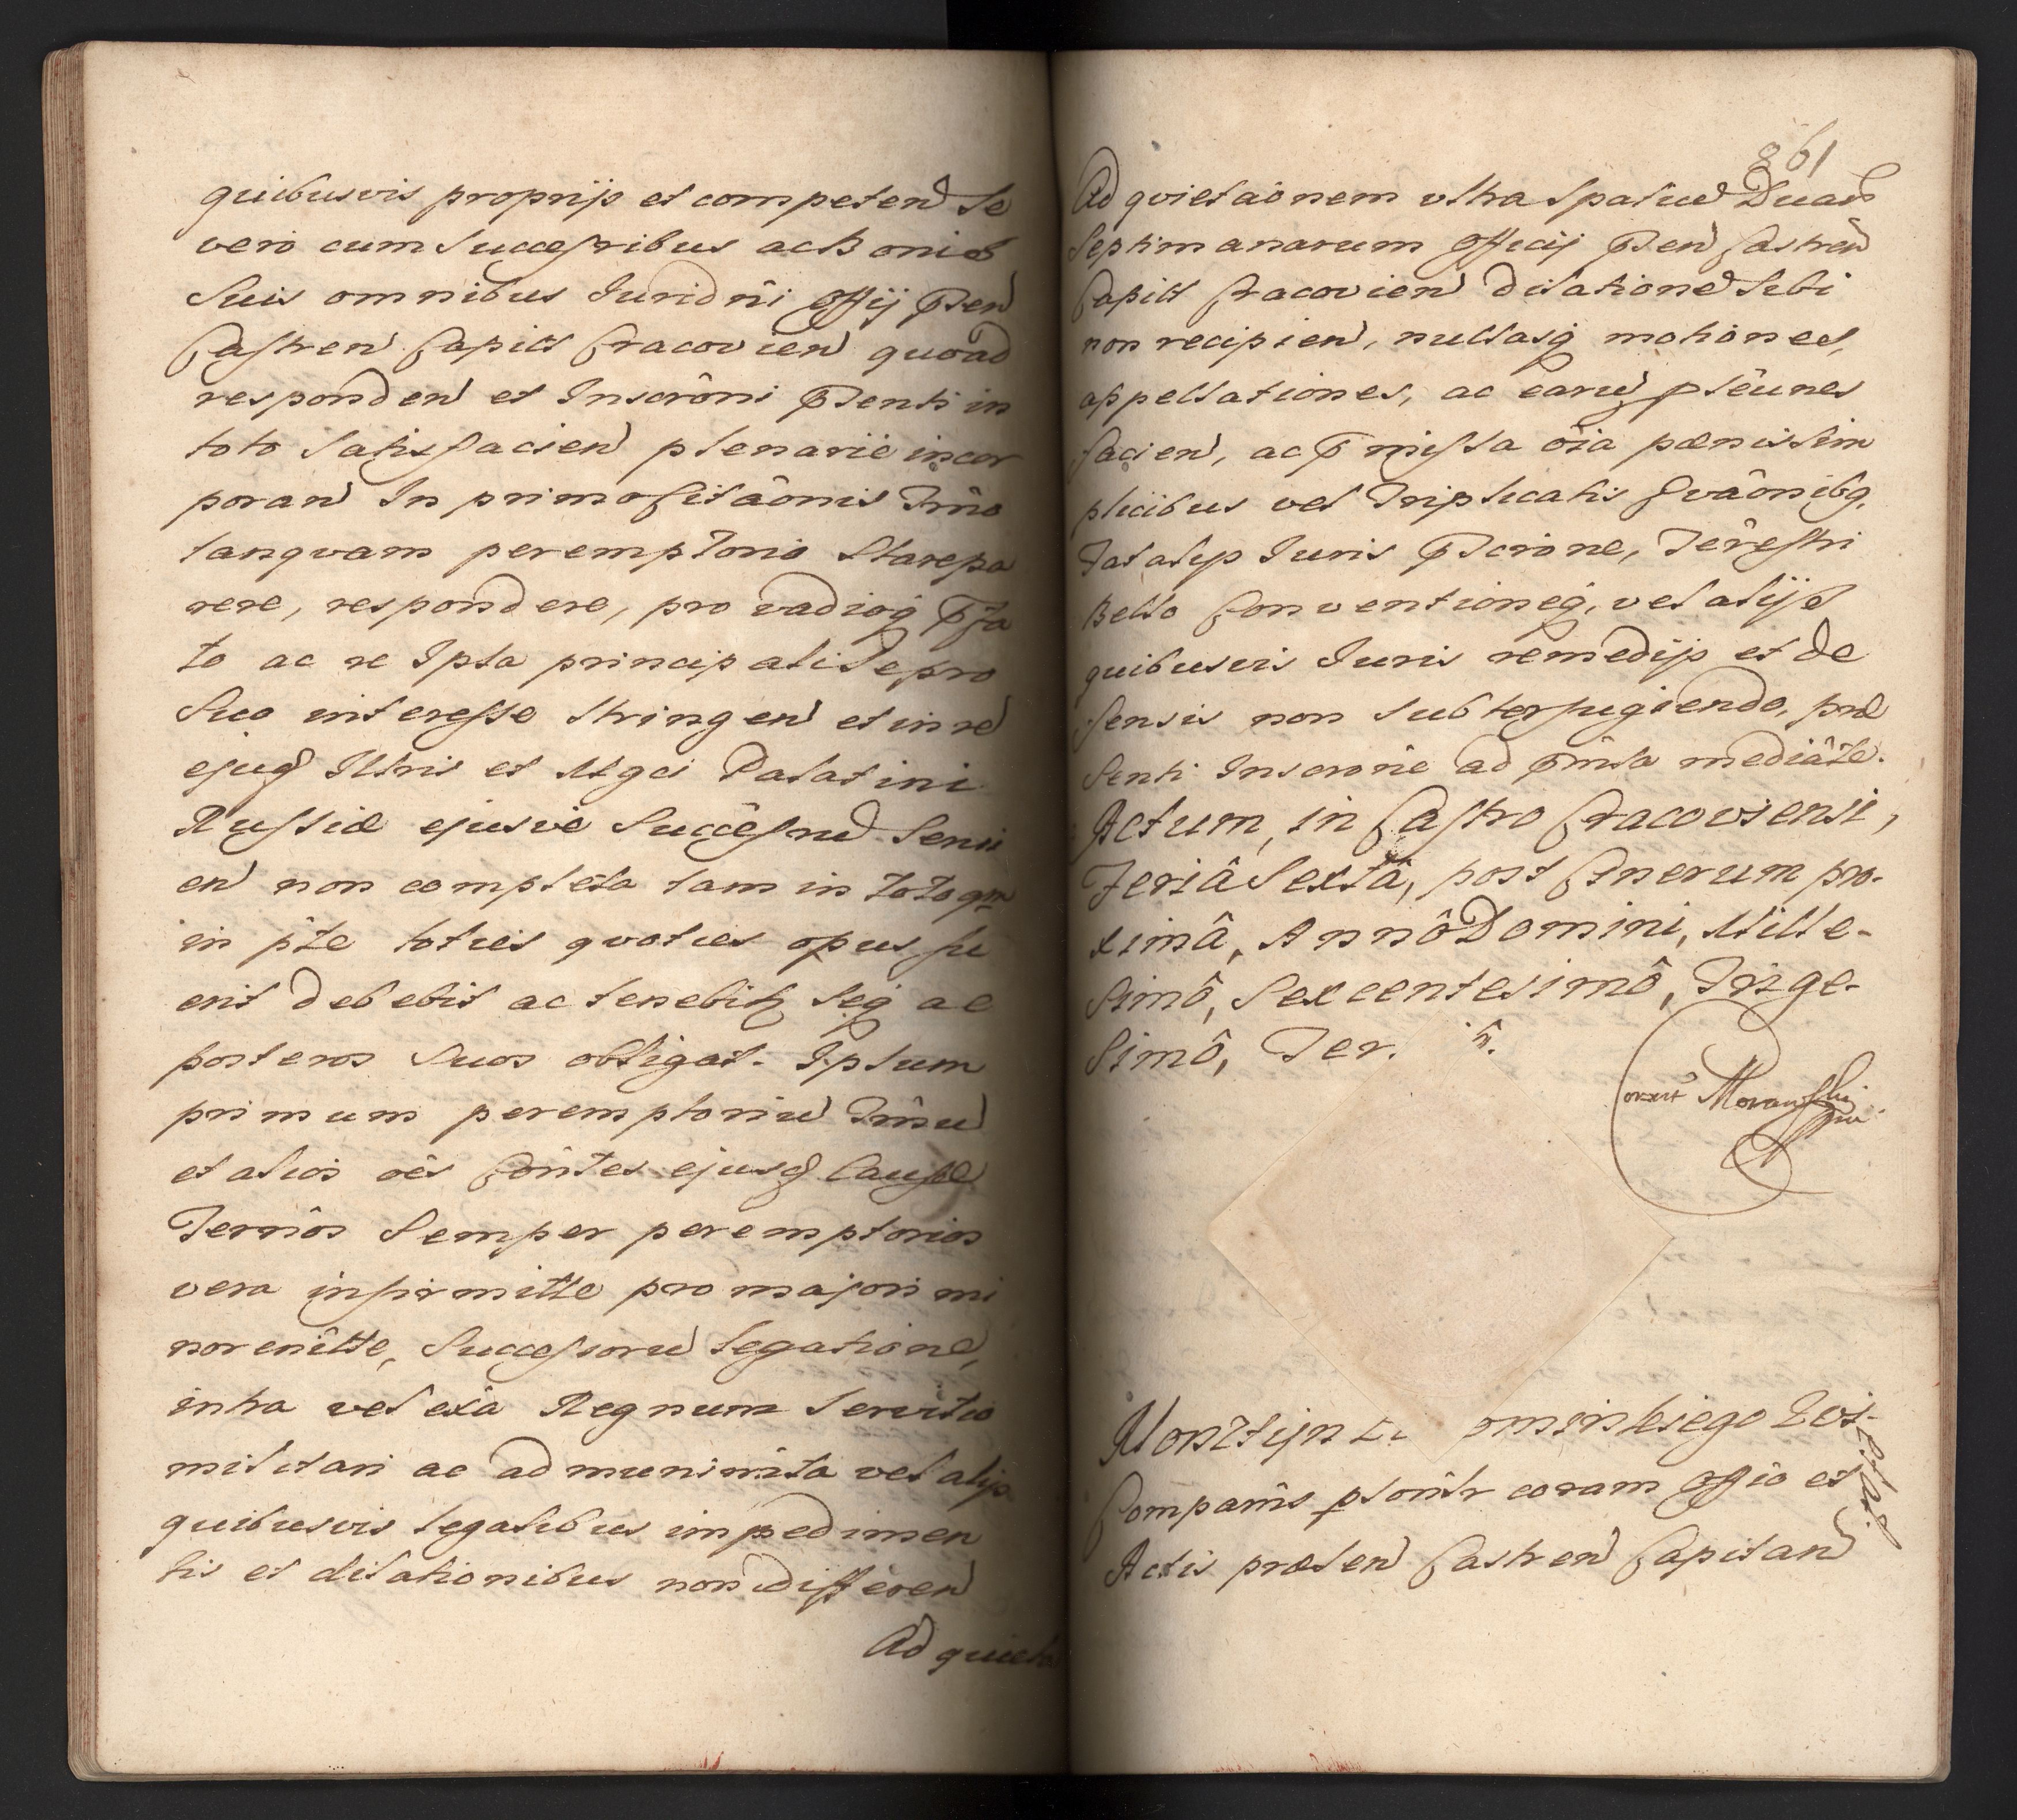 quibusvis proprijs et competen se
vero cum successribus ac Bonis
Suis omnibus Iuridni Offij Pñen
Castren Capits Cracovien quoad
responden et Inscrôni pñenti in
toto satisfacien plenarie incor
poran In primo Citâonis Tmño
tanqvam peremptorio stare pa
rere, respondere, pro vadioq pfa
to ac re Ipsa principali se pro
Suo interesse stringen et in re
ejusd Illtris et Mgci Palatini
Russiæ ejusve Succêsrud Senti
en non completa tam in toto qm
in pte toties qvoties opus fu
erit debebit ac tenebitr seq ac
posteros Suos obligat. Ipsum
primum peremptoriu Tmñu
et alios oês Cônites ejusd Causæ
Termôs Semper peremptorios
vera infirmitte pro majori mi
norenîtte, Successoru legatione,
intra vel exâ Regnum Servitio
militari ac ad munimta vel alijs
quibusvis legalibus impedimen
tis et dilationibus non differen
Ad quieta
861
Ad qvietaônem vltra spatiu Duar
Septimanarum Officij Pñen Castren
Capits Cracovien dilatione sibi
non recipien, nullasq motiones,
appellationes, ac earu psêunes
facien, ac pmissa oîa pænis sim
plicibus vel Triplicatis Gvâonibq,
Tat alys Iuris pscrione, Têrestri
Bello Conventioneq, vel alijs
quibusvis Iuris remedijs et de
fensis non subterfugiendo, præ
senti Inscrône ad pmissa mediâte.
Actum, in Castro Cracoviensi,
Feriâ Sextâ, post Cinerum pro-
ximâ, Annô Domini, Mille-
Simô, Sexcentesimô, Trige-
Simô, Ter. ô.
orexit Morawski
mp
Comparns psônlr coram Offio et
Actis præsen Castren Capitan